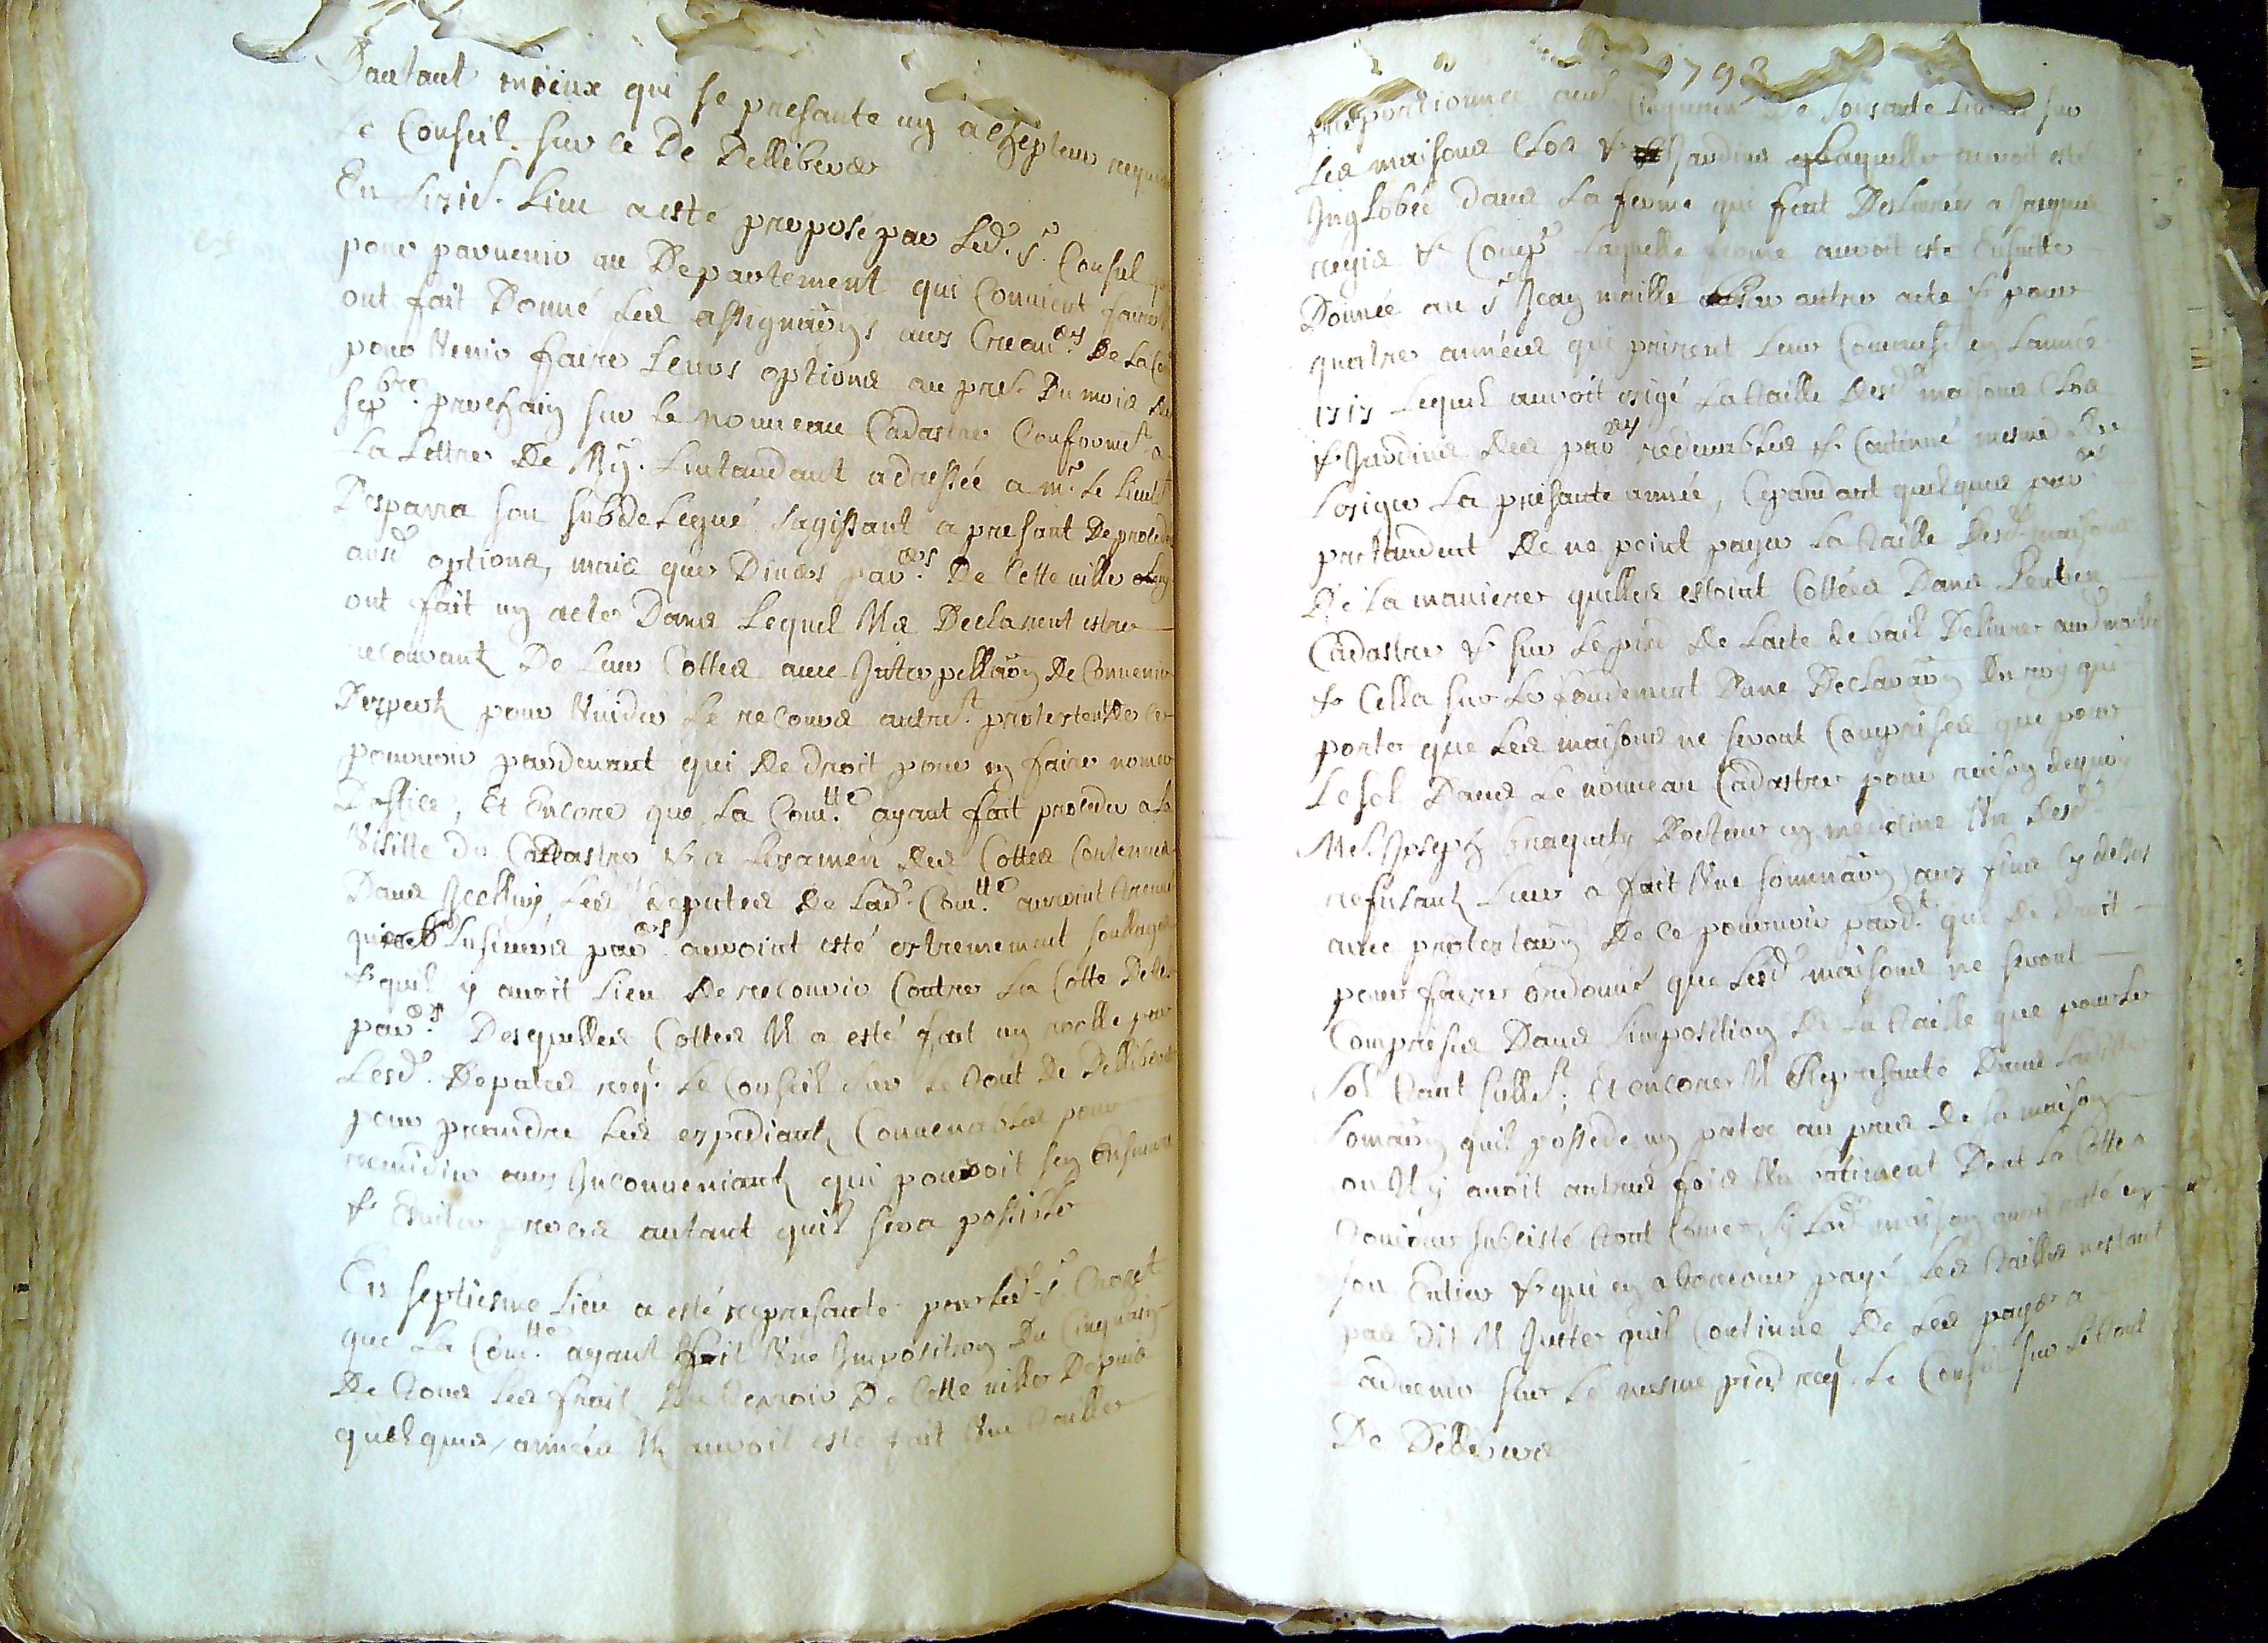 Dautant mieux qui se presante un achepteur requier
Le Conseil sur ce De Dellibever
En sixie. Lieu a esté proposé par Led. Sr. Consul
pour parvenir au Departement qui Convient faire
ont fait Donné Les assignations aux Crean.ers De La
pour Venir faire Leurs options au pre. Du mois de
Sepbre. prochain sur Le nouveau Cadastre Conformet. a
La Lettre De Mg. Lintandant adressée a Mr. Le
Desparra son subdelegué Sagissant a presant De proceder
ausd options, mais que Divers par.ers De Cette ville
ont fait un acte Dans Lequel Ils Declarent estre
recourants De Leur Cottes avec Interpellaon De Convenir
Dexperts pour Vuider Le recours autret. protestent De ce
pourvoir pardevant qui De droit pour en faire nomer
Doffice, Et Encore que La Comtte. ayant fait proceder a La
Visitte du Cadastre & a Lexamen Des Cottes Contenues
Dans Icelluy, Les Deputes De Lad. Comtte. auroint
que plusieurs par.ers auroint esté extremement soullages
& quil y avoit Lieu De recourir Contre La Cotte De
par.ers Desquelles Cottes Il a esté fait un rolle par
Lesd. Deputes req. Le Conseil sur Le tout De Dellibever
pour prandre Les expediants Convenables pour
remedier aux Inconveniants qui pouroit sen Ensuivre
& Eviter proces autant quil sera possible
En septiesme Lieu a esté represanté par Led. Sr. Croset
que La Comtte. ayant fait Une Imposition Du Cinquain
De tous Les fruits Du Terroir De Cette ville Depuis
quelques années Il auroit esté fait Une taille
1793
proportionnée aud Cinquain De Soixante Livres sur
Les maisons Clos & Jardins Laquelle auroit esté
Inglobée Dans La ferme qui feut Deslivrée a Jacques
regis & Comp. Laquelle ferme auroit esté Ensuitte
Donnée au Sr Jean maille par autre acte & pour
quatre années qui prirent Leur Commenst. en Lannée
1717 Lequel auroit exigé La taille Desd maisons Clos
& Jardins Des par.ers redevables & Continué mesme De
Lexiger La presante année, Cepandant quelques par.ers
pretandent De ne point payer La taille Desd. maisons
De La maniere quelles estoint Cottées Dans Lentien
Cadastre & sur Le pied De Lacte De bail Delivré aud maille
& Cella sur Le fondement Dune Declaration Du roy qui
porte que Les maisons ne seront Comprises que pour
Le sol Dans Le nouveau Cadastre pour raison dequoy
Me. Joseph Docteur en medecine Un Desd.
refusants Leur a fait Une sommaon aux fins cy dessus
avec protestaon De ce pourvoir pardt. qui De droit
pour faire ordonné que Lesd maisons ne seront
Comprises Dans Limposition De La taille que pour Le
Sol tant sullet; Et encore Il Represante Dans Lad
Somaon quil possede un patec au pres De sa maison
ou Il y avoit autres fois Un batiment Dont La Cotte a
toujours subcisté tout Comme sy Lad maison avoit resté en
son Entier & qui en a toujours payé Les tailles nestant
pas dit Il Juste quil Continue De Les payer a
Ladvenir sur Le mesme pied req. Le Conseil sur Le tout
De Dellibever